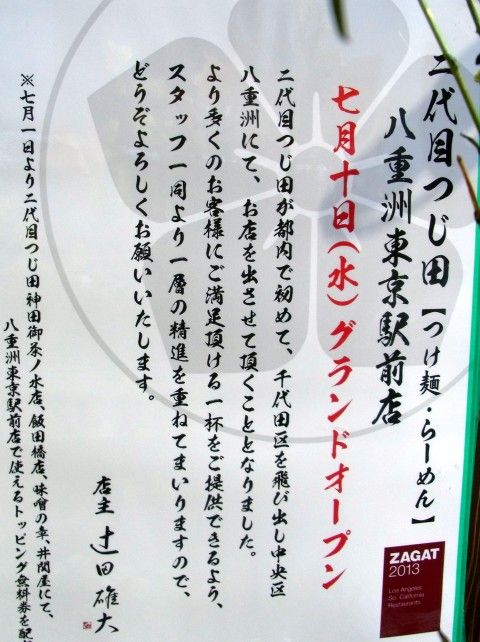 二代目つじ田【つけ麺・らーめん】
八重洲東京駅前店
七月十日(水)グランドオープン
二代目つじ田が都内で初めて、千代田区を飛び出し中央区
八重洲にて、お店を出させて頂くこととなりました。
より多くのお客様にご満足頂ける一杯をご提供できるよう、
スタッフ一同より一層の精進を重ねてまいりますので、
どうぞよろしくお願いいたします。
店主 辻田雄大
※七月一日より二代目つじ田神田御茶ノ水店、飯田橋店、味噌の章、井関屋にて、
八重洲東京駅前店で使えるトッピング無料券を配
ZAGAT
2013
Los Angeles
So. California
Restaurants